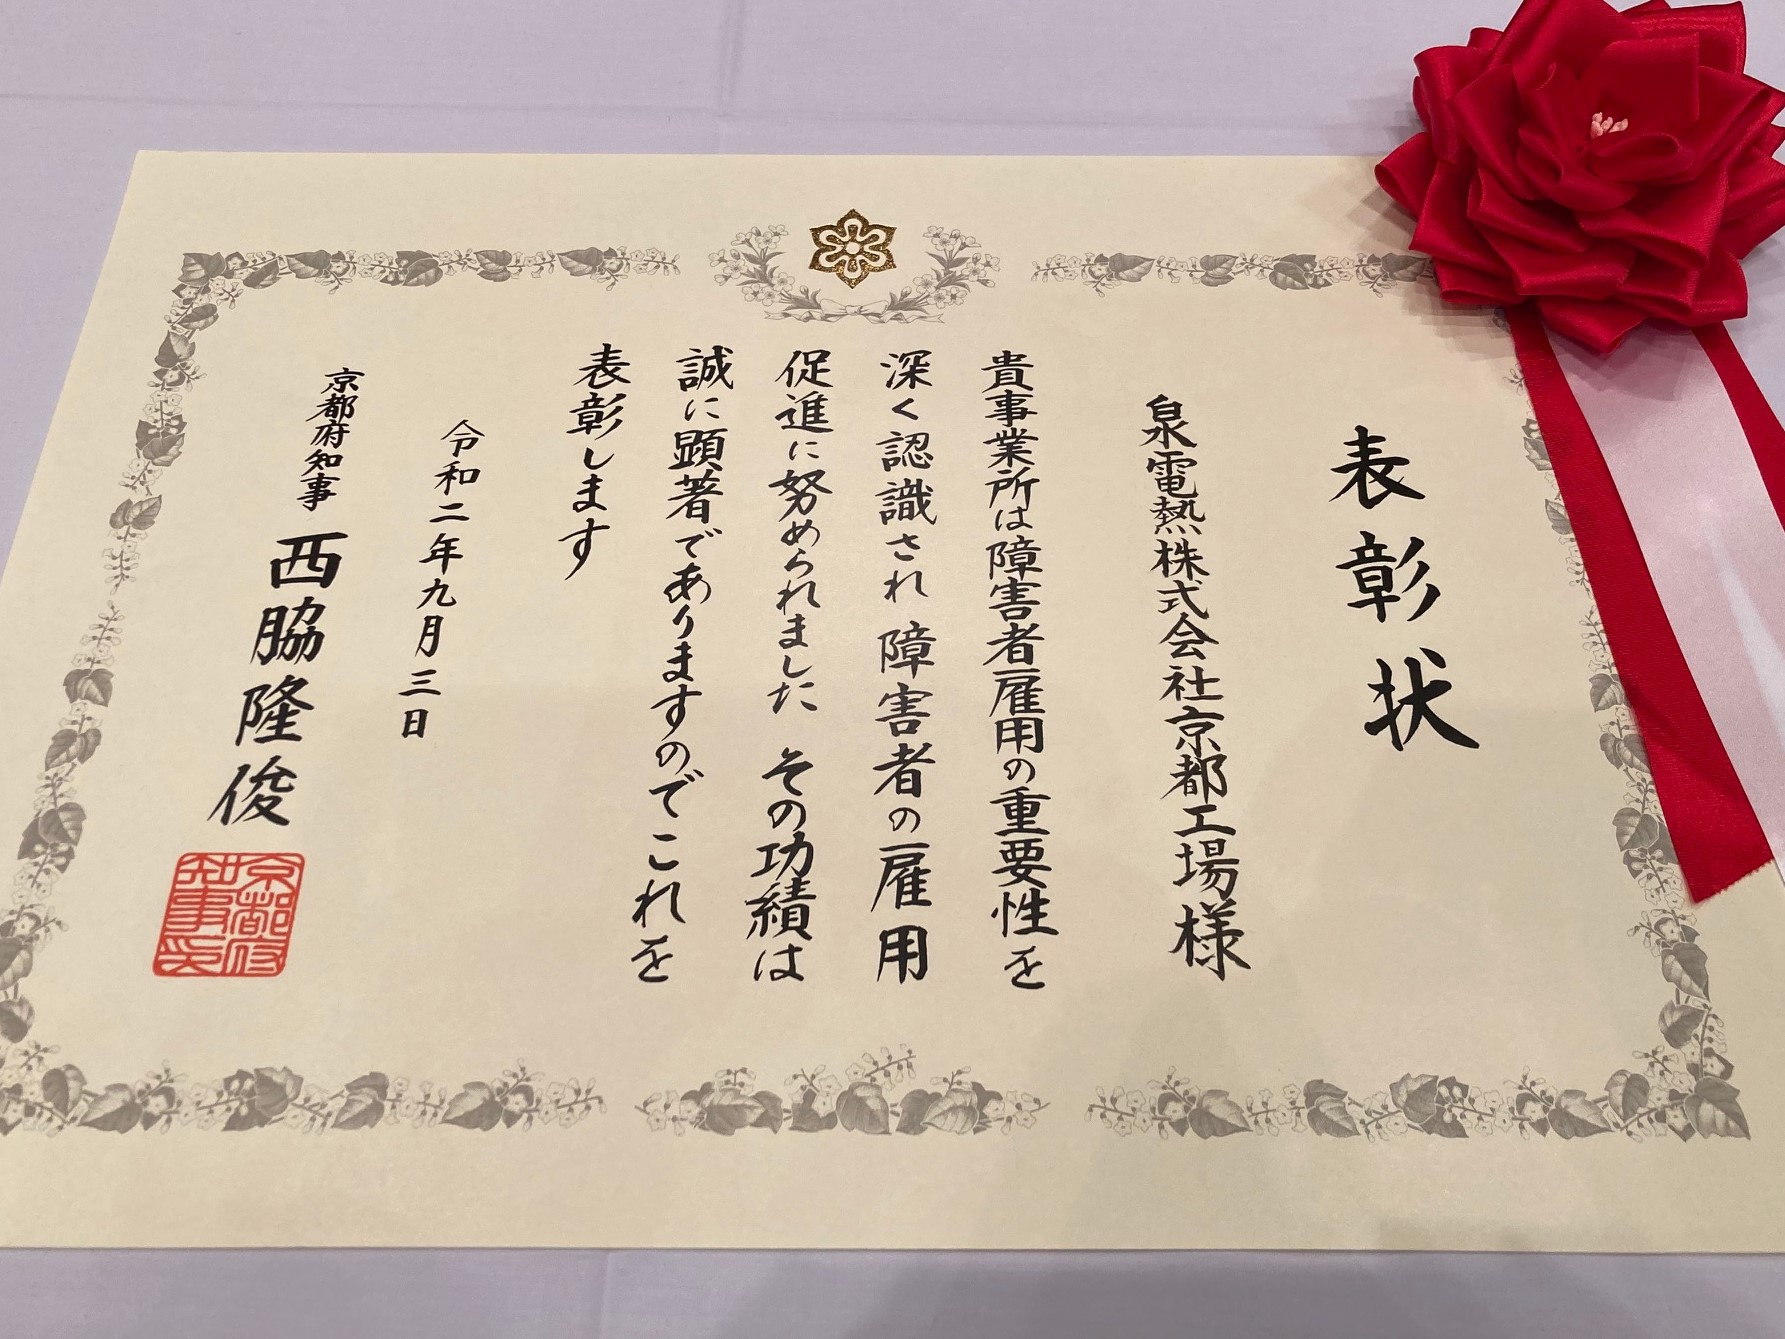 表彰状
泉電熱株式会社京都工場様
貴事業所は障害者雇用の重要性を
深く認識され障害者の雇用
促進に努められました その功績は
誠に顕著でありますのでこれを
表彰します
令和二年九月三日
京都府知事 西脇隆俊
京都府
知事印